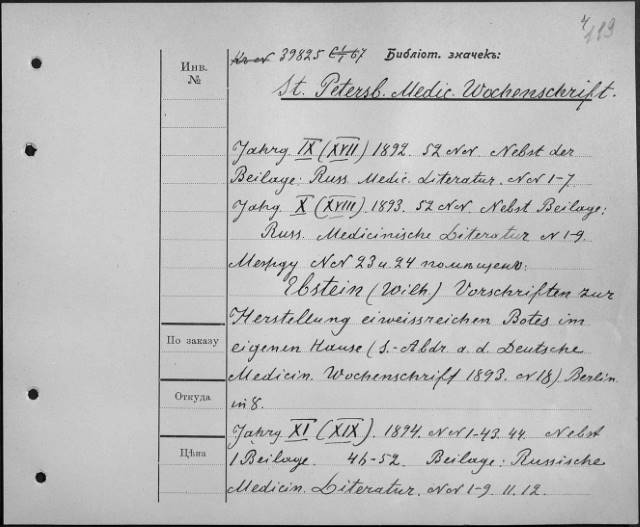 4
119
39825 Библіот. значекъ:
Инв.
№
St. Petersb. Medic. Wochenschrift.
Jahrg. IX (XVII) 1892. 52 NN. Nebst der
Beilage: Russ. Medic. Literatur. NN 1-7
Jahg. X (XVIII) 1893. 52 NN. Nebst Beilage:
Russ. Medicinische Literatur N 1-9.
Между NN 23 u. 24 помѣщенъ:
Ebstein (Wilh) Vorschriften zur
Herstellung eiweissreichen Botes im
По заказу
eigenen Hause (S.-Abdr. a. d. Deutsche
Medicin. Wochenschrift 1893. N 18) Berlin
Откуда
in 8.
Jahrg. XI (XIX). 1894. NN 1-43. 44. Nebst
Цѣна
1 Beilage. 46-52. Beilage: Russische
Medicin. Literatur. NN 1-9. 11. 12.